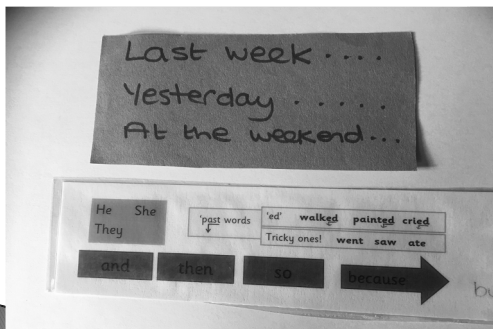 Last week ....
Yesterday .....
At the weekend...
He She
They
'past words
'ed' walked painted cried
Tricky ones! went saw ate
and then so because
bu